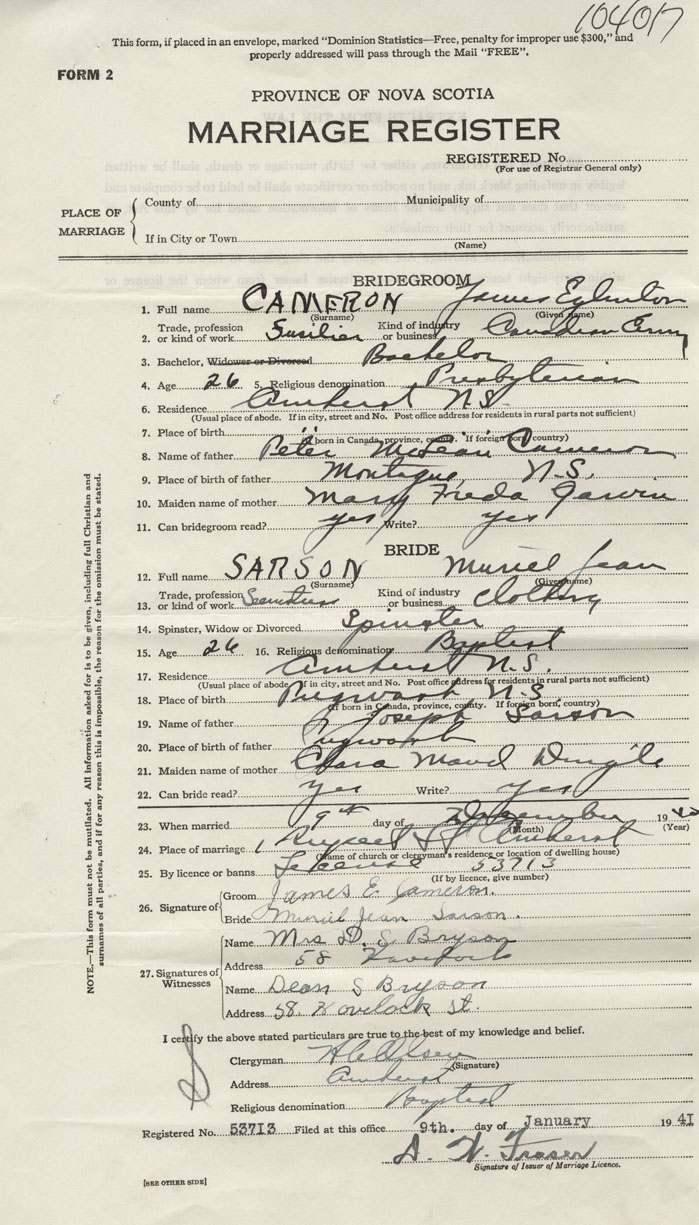 104017
This form, if placed in an envelope, marked "Dominion Statistics—Free, penalty for improper use $300," and
properly addressed will pass through the Mail "FREE".
FORM 2
PROVINCE OF NOVA SCOTIA
MARRIAGE REGISTER
REGISTERED No.
(For use of Registrar General only)
PLACE OF MARRIAGE
County of Municipality of
If in City or Town
(Name)
BRIDEGROOM
1. Full name CAMERON James Eglinton
(Surname) (Given name)
2. Trade, profession or kind of work Fusilier Kind of industry or business Canadian Army
3. Bachelor, Widower or Divorced Bachelor
4. Age 26 5. Religious denomination Presbyterian
6. Residence Amherst N.S.
(Usual place of abode. If in city, street and No. Post office address for residents in rural parts not sufficient)
7. Place of birth " "
(If born in Canada, province, county. If foreign born, country)
8. Name of father Peter McLean Cameron
9. Place of birth of father Montague, N.S.
10. Maiden name of mother Mary Freda
11. Can bridegroom read? yes Write? yes
BRIDE
12. Full name SARSON Muriel Jean
(Surname) (Given name)
13. Trade, profession or kind of work Seamstress Kind of industry or business Clothing
14. Spinster, Widow or Divorced Spinster
15. Age 26 16. Religious denomination Baptist
17. Residence Amherst N.S.
(Usual place of abode. If in city, street and No. Post office address for residents in rural parts not sufficient)
18. Place of birth Pugwash N.S.
(If born in Canada, province, county. If foreign born, country)
19. Name of father Joseph Sarson
20. Place of birth of father Pugwash
21. Maiden name of mother Clara Maud Dingle
22. Can bride read? yes Write? yes
23. When married 9th day of December 1940
(Month) (Year)
24. Place of marriage Russell St Amherst
(Name of church or clergyman's residence or location of dwelling house)
25. By licence or banns License 53713
(If by licence, give number)
26. Signature of
Groom James E. Cameron.
Bride Muriel Jean Sarson.
27. Signatures of Witnesses
Name Mrs D. S. Bryson
Address 58 Havelock
Name Dean S Bryson
Address 58. Havelock St.
I certify the above stated particulars are true to the best of my knowledge and belief.
Clergyman
(Signature)
Address Amherst
Religious denomination Baptist
Registered No. 53713 Filed at this office 9th. day of January 1941
A. W. Fraser
Signature of Issuer of Marriage Licence.
[SEE OTHER SIDE]
NOTE.—This form must not be mutilated. All information asked for is to be given, including full Christian and
surnames of all parties, and if for any reason this is impossible, the reason for the omission must be stated.